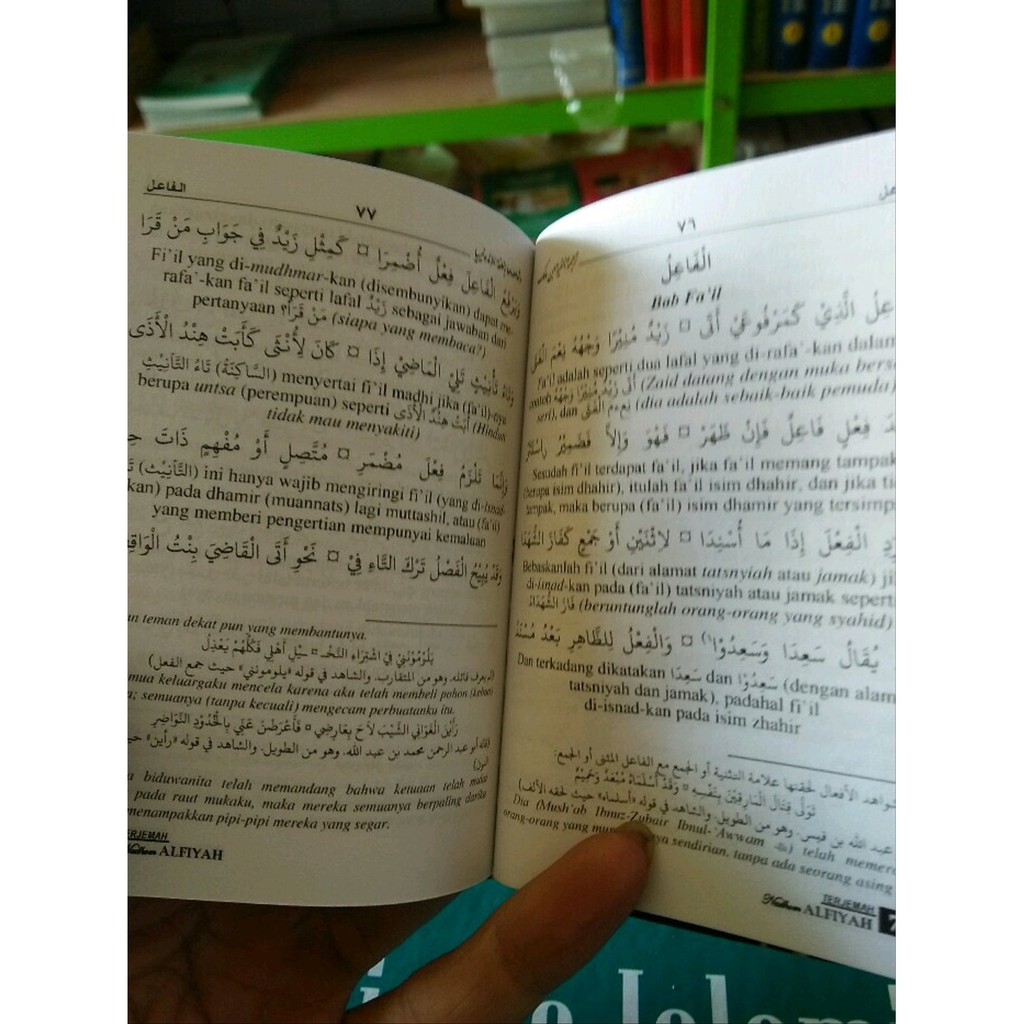 ٧٦
الْفَاعِلُ
Bab Fa'il
الَّذِيْ كَمَرْفُوعَيْ أَتَى ¤ زَيْدٌ مُنِيْرًا وَجْهُهُ نِعْمَ الْفَتَى
Fa'il adalah seperti dua lafal yang di-rafa'-kan dalam
contoh أَتَى زَيْدٌ مُنِيْرًا وَجْهُهُ (Zaid datang dengan muka berse
seri), dan نِعْمَ الْفَتَى (dia adalah sebaik-baik pemuda)
فِعْلٍ فَاعِلٌ فَإِنْ ظَهَرْ ¤ فَهْوَ وَإِلاَّ فَضَمِيْرٌ اسْتَتَرْ
Sesudah fi'il terdapat fa'il, jika fa'il memang tampak
(berupa isim dhahir), itulah fa'il isim dhahir, dan jika ti
tampak, maka berupa (fa'il) isim dhamir yang tersimp
الْفِعْلَ إِذَا مَا أُسْنِدَا ¤ لاِثْنَيْنِ أَوْ جَمْعٍ كَفَازَ الشُّهَدَا
Bebaskanlah fi'il (dari alamat tatsnyiah atau jamak) ji
di-isnad-kan pada (fa'il) tatsniyah atau jamak seperti
فَازَ الشُّهَدَاءُ (beruntunglah orang-orang yang syahid)
يُقَالُ سَعِدَا وَسَعِدُوْا ¤ وَالْفِعْلُ لِلظَّاهِرِ بَعْدُ مُسْنَدُ
Dan terkadang dikatakan سَعِدَا dan سَعِدُوْا (dengan alam
tatsniyah dan jamak), padahal fi'il
di-isnad-kan pada isim zhahir
الأفعال لحقتها علامة التثنية أو الجمع مع الفاعل المثنى أو الجمع:
تَوَلَّى قِتَالَ الْمَارِقِيْنَ بِنَفْسِهِ ¤ وَقَدْ أَسْلَمَاهُ مُبْعَدٌ وَحَمِيْمُ
عبد الله بن قيس. وهو من الطويل. والشاهد في قوله «أسلماه» حيث لحقه الألف)
Dia (Mush'ab Ibnuz-Zubair Ibnul-'Awwam) telah memera
orang-orang yang sendirian, tanpa ada seorang asing
TERJEMAH
Nadhom ALFIYAH
الفاعل
٧٧
وَيَرْفَعُ الْفَاعِلَ فِعْلٌ أُضْمِرَا ¤ كَمِثْلِ زَيْدٌ فِي جَوَابِ مَنْ قَرَا
Fi'il yang di-mudhmar-kan (disembunyikan) dapat me-
rafa'-kan fa'il seperti lafal زَيْدٌ sebagai jawaban dari
pertanyaan مَنْ قَرَأَ؟ (siapa yang membaca?)
وَتَاءُ تَأْنِيْثٍ تَلِي الْمَاضِيْ إِذَا ¤ كَانَ لِأُنْثَى كَأَبَتْ هِنْدُ الْأَذَى
تَاءُ التَّأْنِيْثِ (السَّاكِنَةُ) menyertai fi'il madhi jika (fa'il)-nya
berupa untsa (perempuan) seperti أَبَتْ هِنْدُ الْأَذَى (Hindun
tidak mau menyakiti)
وَإِنَّمَا تَلْزَمُ فِعْلَ مُضْمَرِ ¤ مُتَّصِلٍ أَوْ مُفْهِمٍ ذَاتَ
(التَّأْنِيْثِ) ini hanya wajib mengiringi fi'il (yang di-isnad-
kan) pada dhamir (muannats) lagi muttashil, atau (fa'il)
yang memberi pengertian mempunyai kemaluan
وَقَدْ يُبِيْحُ الْفَصْلُ تَرْكَ التَّاءِ فِيْ ¤ نَحْوِ أَتَى الْقَاضِيَ بِنْتُ الْوَاقِفِ
teman dekat pun yang membantunya.
يَلُوْمُوْنَنِيْ فِيْ اشْتِرَاءِ النَّخِيْـ ¤ ـلِ أَهْلِي فَكُلُّهُمْ يَعْذِلُ
(لم يعرف قائله. وهو من المتقارب. والشاهد في قوله «يلومونني» حيث جمع الفعل)
mua keluargaku mencela karena aku telah membeli pohon (kebun)
semuanya (tanpa kecuali) mengecam perbuatanku itu.
رَأَيْنَ الْغَوَانِي الشَّيْبَ لاَحَ بِعَارِضِي ¤ فَأَعْرَضْنَ عَنِّي بِالْخُدُوْدِ النَّوَاضِرِ
(قاله أبو عبد الرحمن محمد بن عبد الله. وهو من الطويل. والشاهد في قوله «رأين»
النون)
biduwanita telah memandang bahwa ketuaan telah mulai
pada raut mukaku, maka mereka semuanya berpaling dariku
menampakkan pipi-pipi mereka yang segar.
TERJEMAH
Nadhom ALFIYAH